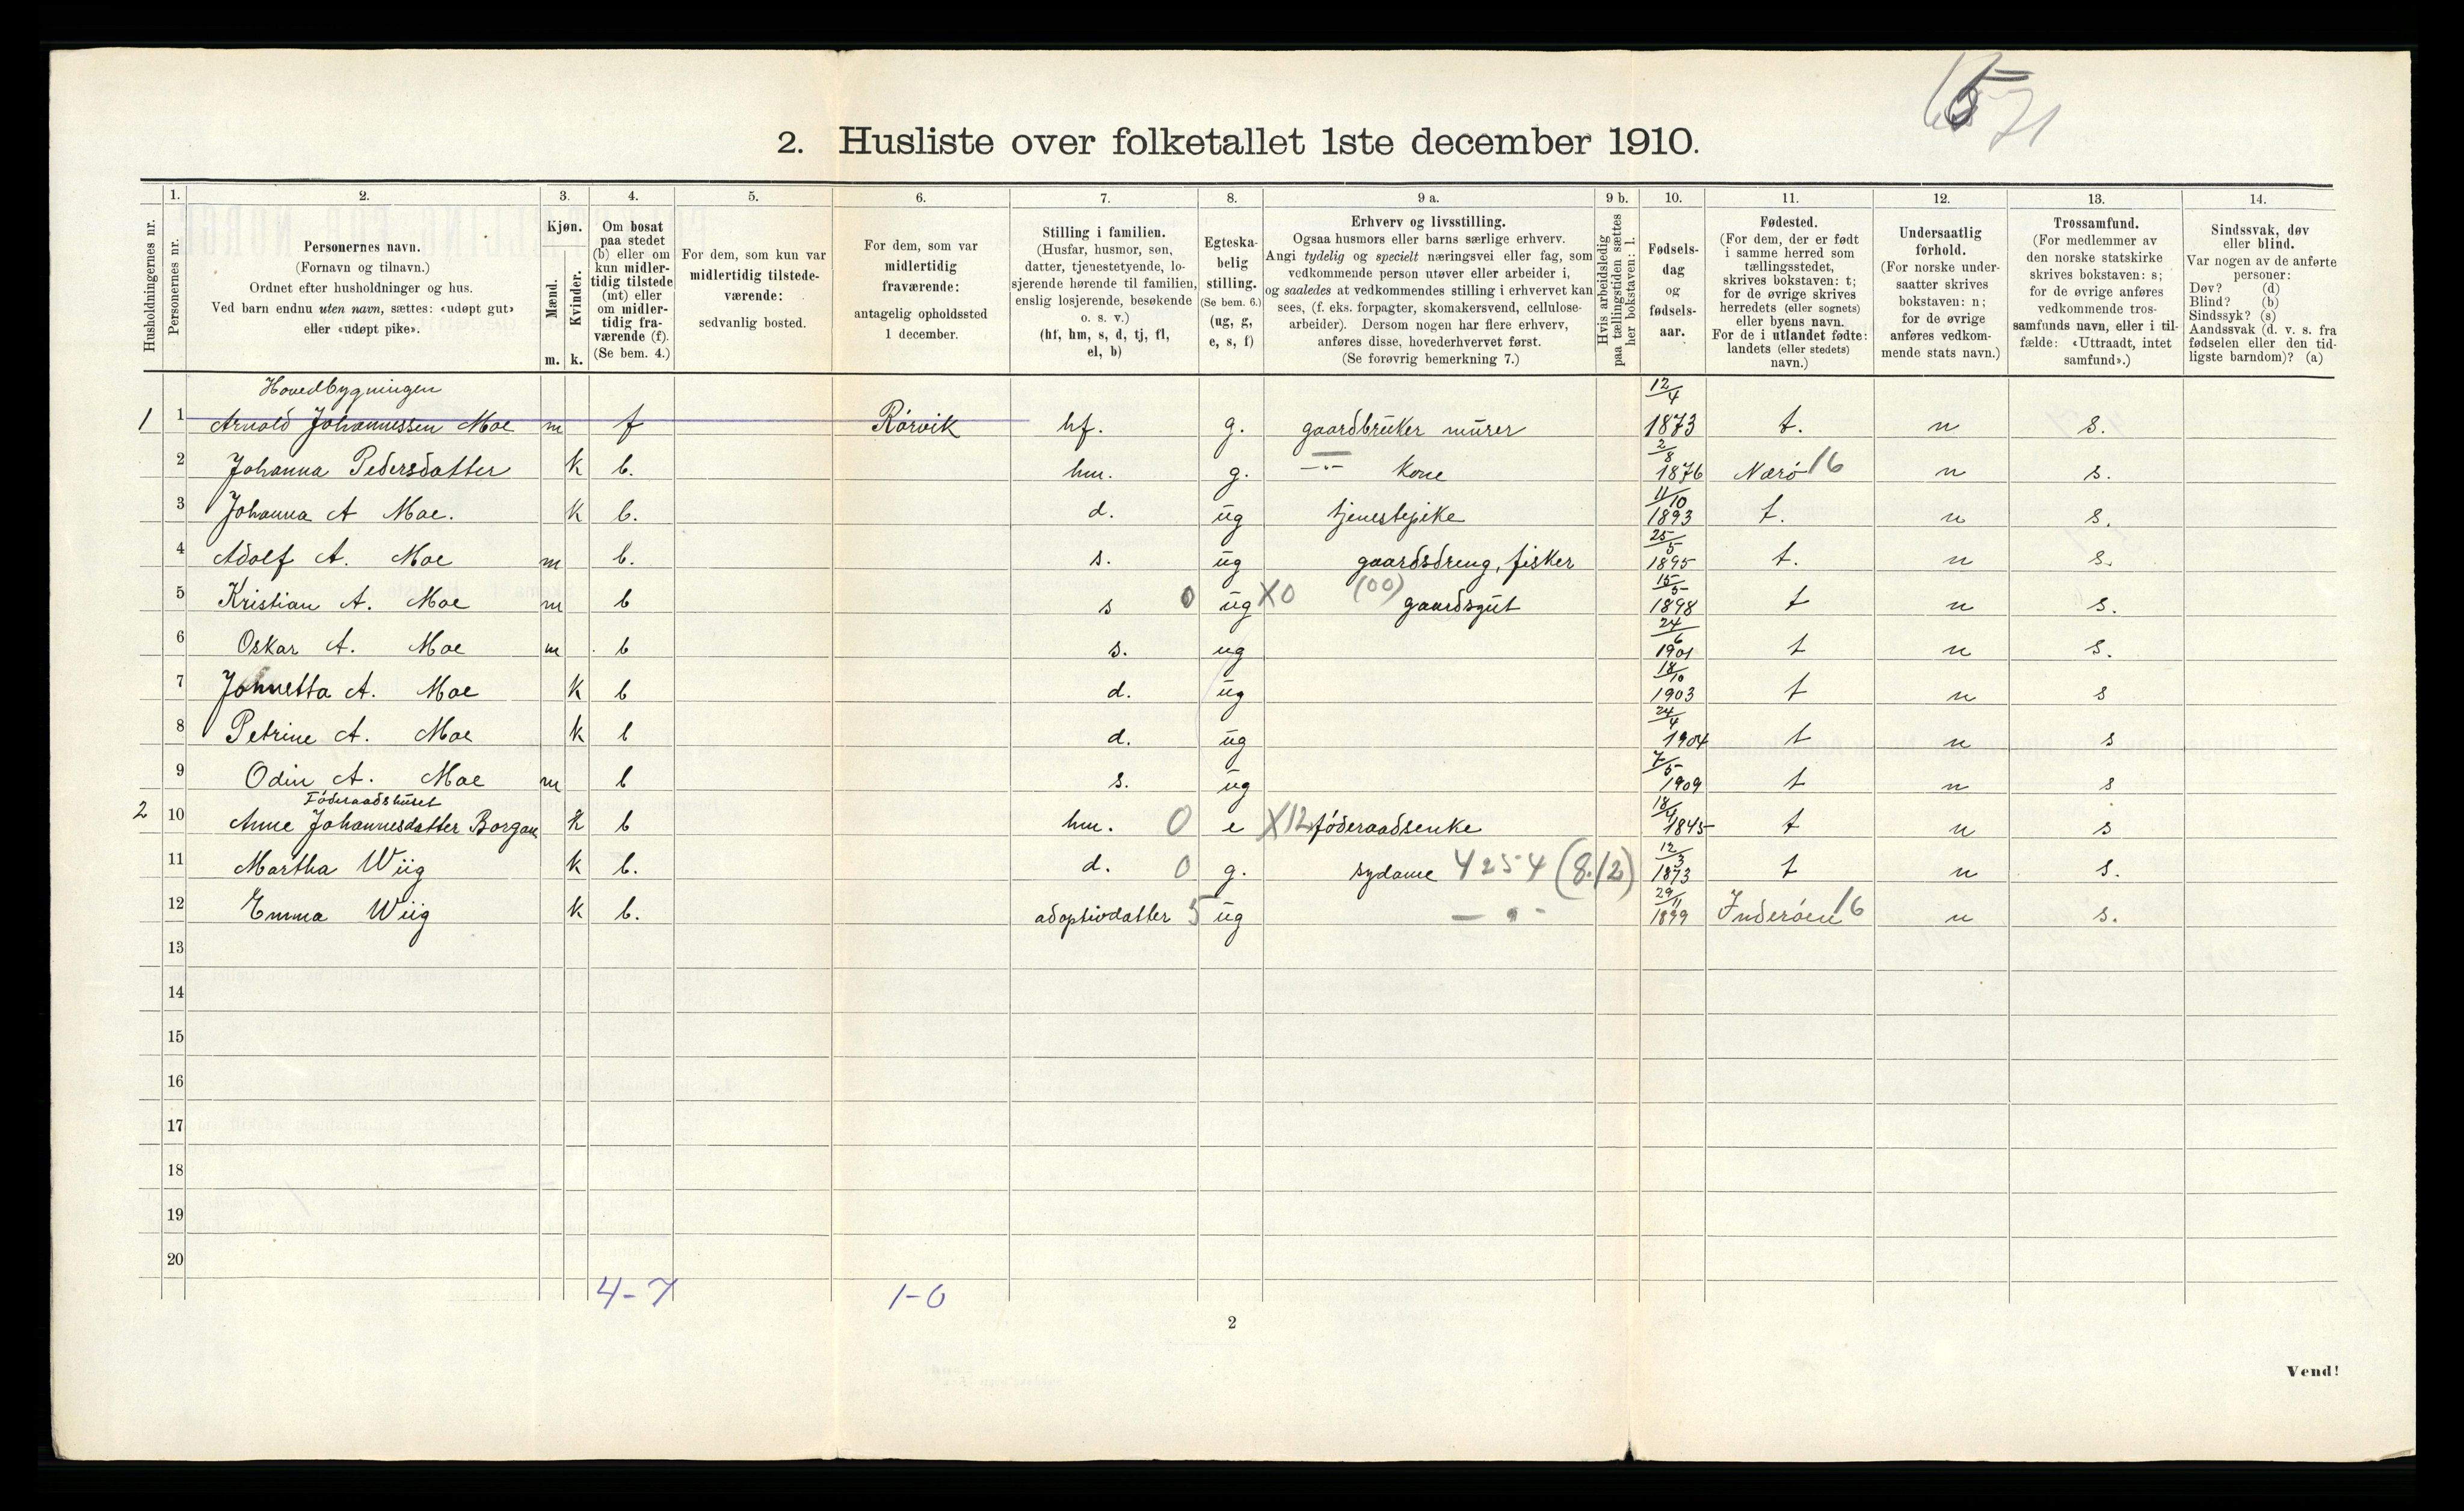 65 71
2. Husliste over folketallet 1ste december 1910.
Husholdningernes nr.
1.
Personernes nr.
2.
Personernes navn.
(Fornavn og tilnavn.)
Ordnet efter husholdninger og hus.
Ved barn endnu uten navn, sættes: «udøpt gut»
eller «udøpt pike».
3.
Kjøn.
Mænd.
m.
Kvinder.
k.
4.
Om bosat
paa stedet
(b) eller om
kun midler-
tidig tilstede
(mt) eller
om midler-
tidig fra-
værende (f).
(Se bem. 4.)
5.
For dem, som kun var
midlertidig tilstede-
værende:
sedvanlig bosted.
6.
For dem, som var
midlertidig
fraværende:
antagelig opholdssted
1 december.
7.
Stilling i familien.
(Husfar, husmor, søn,
datter, tjenestetyende, lo-
sjerende hørende til familien,
enslig losjerende, besøkende
o. s. v.)
(hf, hm, s, d, tj, fl,
el, b)
8.
Egteska-
belig
stilling.
(Se bem. 6.)
(ug, g,
e, s, f)
9 a.
Erhverv og livsstilling.
Ogsaa husmors eller barns særlige erhverv.
Angi tydelig og specielt næringsvei eller fag, som
vedkommende person utøver eller arbeider i,
og saaledes at vedkommendes stilling i erhvervet kan
sees, (f. eks. forpagter, skomakersvend, cellulose-
arbeider). Dersom nogen har flere erhverv,
anføres disse, hovederhvervet først.
(Se forøvrig bemerkning 7.)
9 b.
Hvis arbeidsledig
paa tællingstiden sættes
her bokstaven: l.
10.
Fødsels-
dag
og
fødsels-
aar.
11.
Fødested.
(For dem, der er født
i samme herred som
tællingsstedet,
skrives bokstaven: t;
for de øvrige skrives
herredets (eller sognets)
eller byens navn.
For de i utlandet fødte:
landets (eller stedets)
navn.)
12.
Undersaatlig
forhold.
(For norske under-
saatter skrives
bokstaven: n;
for de øvrige
anføres vedkom-
mende stats navn.)
13.
Trossamfund.
(For medlemmer av
den norske statskirke
skrives bokstaven: s;
for de øvrige anføres
vedkommende tros-
samfunds navn, eller i til-
fælde: «Uttraadt, intet
samfund».)
14.
Sindssvak, døv
eller blind.
Var nogen av de anførte
personer:
Døv? (d)
Blind? (b)
Sindssyk? (s)
Aandssvak (d. v. s. fra
fødselen eller den tid-
ligste barndom)? (a)
Hovedbygningen
1 1 Arnold Johannessen Moe m f Rørvik hf. g. gaardbruker murer 12/4 1873 t. n s.
2 Johanna Pedersdatter k b. hm. g. —"— kone 2/8 1876 Nærø 16 n s.
3 Johanna A Moe. k b. d. ug tjenestepike 11/10 1893 t. n s.
4 Adolf A. Moe m b. s. ug gaardsdreng, fisker 25/5 1895 t. n s.
5 Kristian A. Moe m b s 0 ug X0 (00) gaardsgut 15/5 1898 t n s.
6 Oskar A. Moe m b s. ug 24/6 1901 t n s.
7 Johnetta A. Moe k b d. ug 18/10 1903 t n s
8 Petrine A. Moe k b d. ug 24/4 1904 t n s
9 Odin A. Moe m b s. ug 7/5 1909 t n s
Føderaadshuset
2 10 Anne Johannesdatter Borgan k b hm. 0 e X12 føderaadsenke 18/4 1845 t n s
11 Martha Wiig k b. d. 0 g. sydame 4254 (8.12) 12/3 1873 t n s.
12 Emma Wiig k b. adoptivdatter 5 ug —"— 29/11 1899 Inderøen 16 n s.
13
14
15
16
17
18
19
20
4-7 1-0
2
Vend!